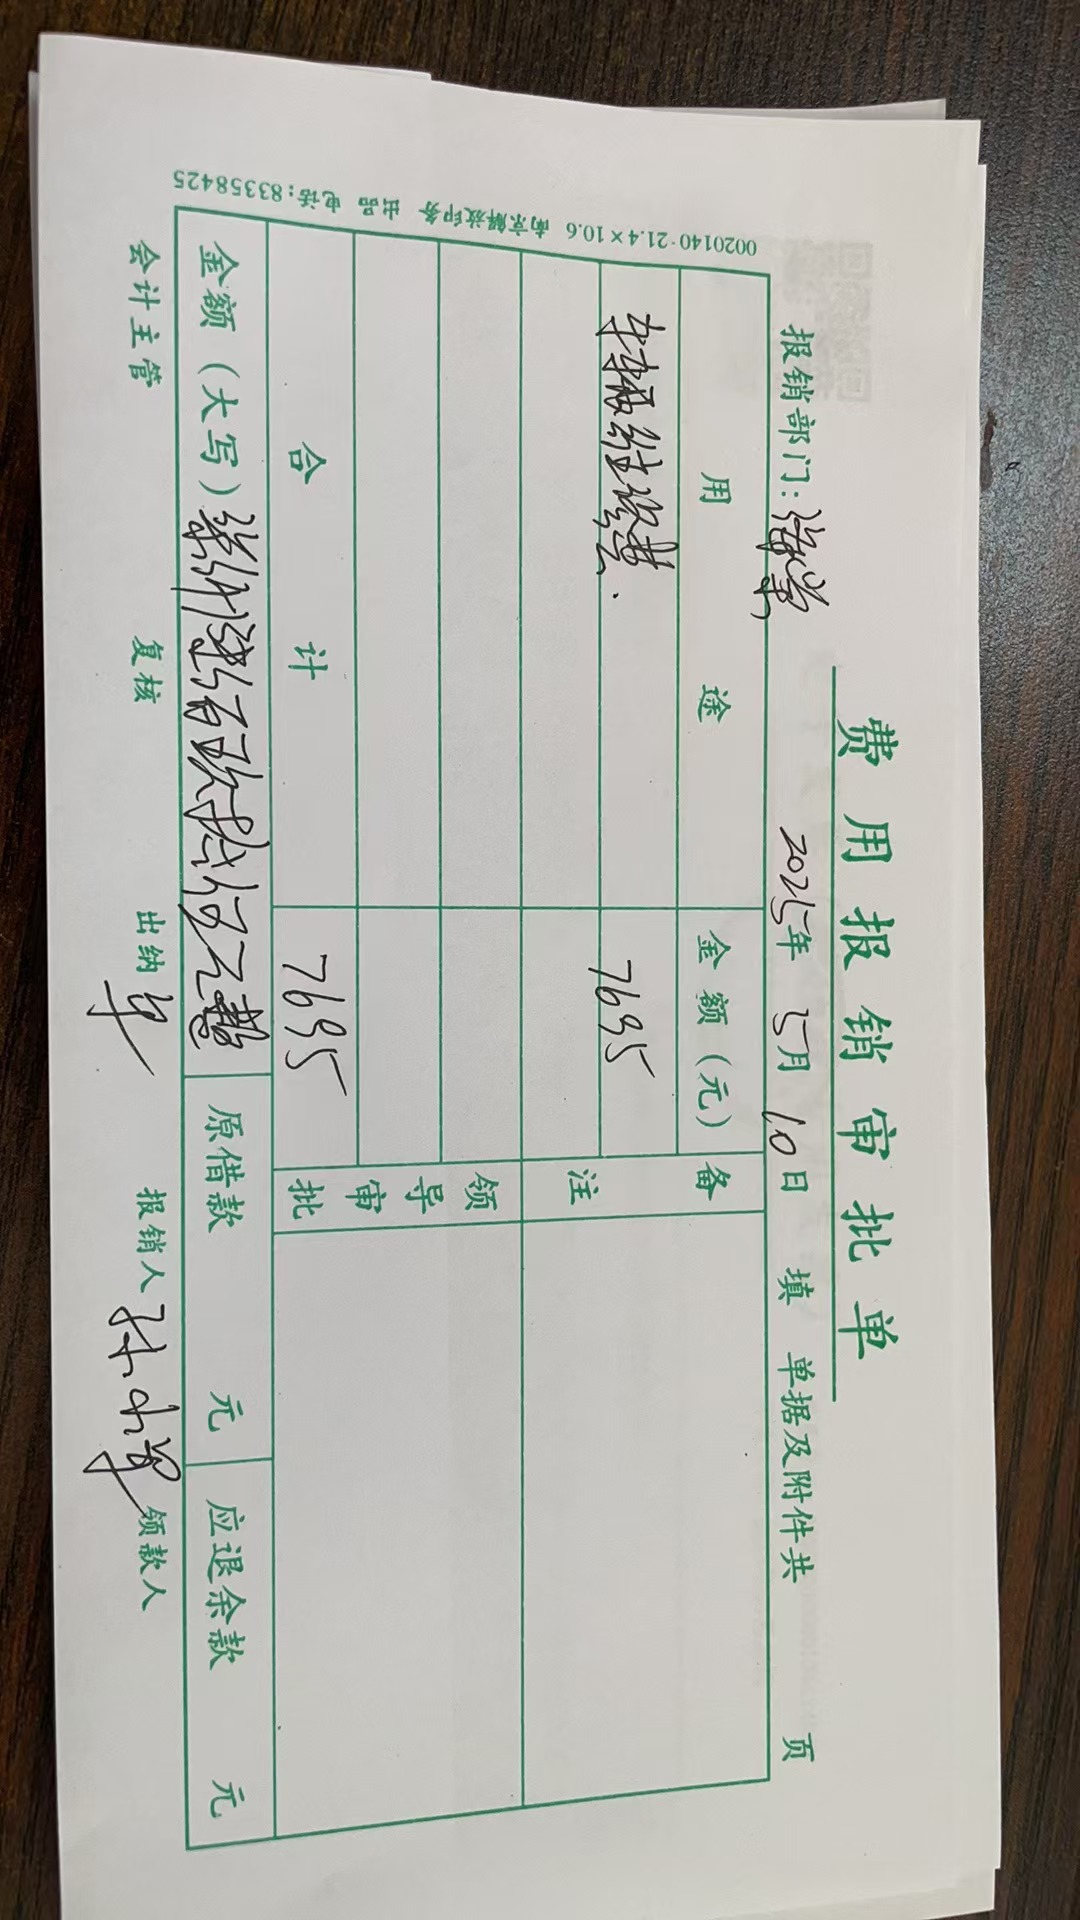 费用报销审批单
报销部门：海棠 2025年 5月 10日 填 单据及附件共 页
用途 金额（元） 备注
车辆维修费. 7695
合计 7695 领导审批
金额（大写）柒仟陆百玖拾伍元整 原借款 元 应退余款 元
会计主管 复核 出纳 报销人 领款人
0020140·21.4×10.6 南京解放印务 出品 电话:83358425